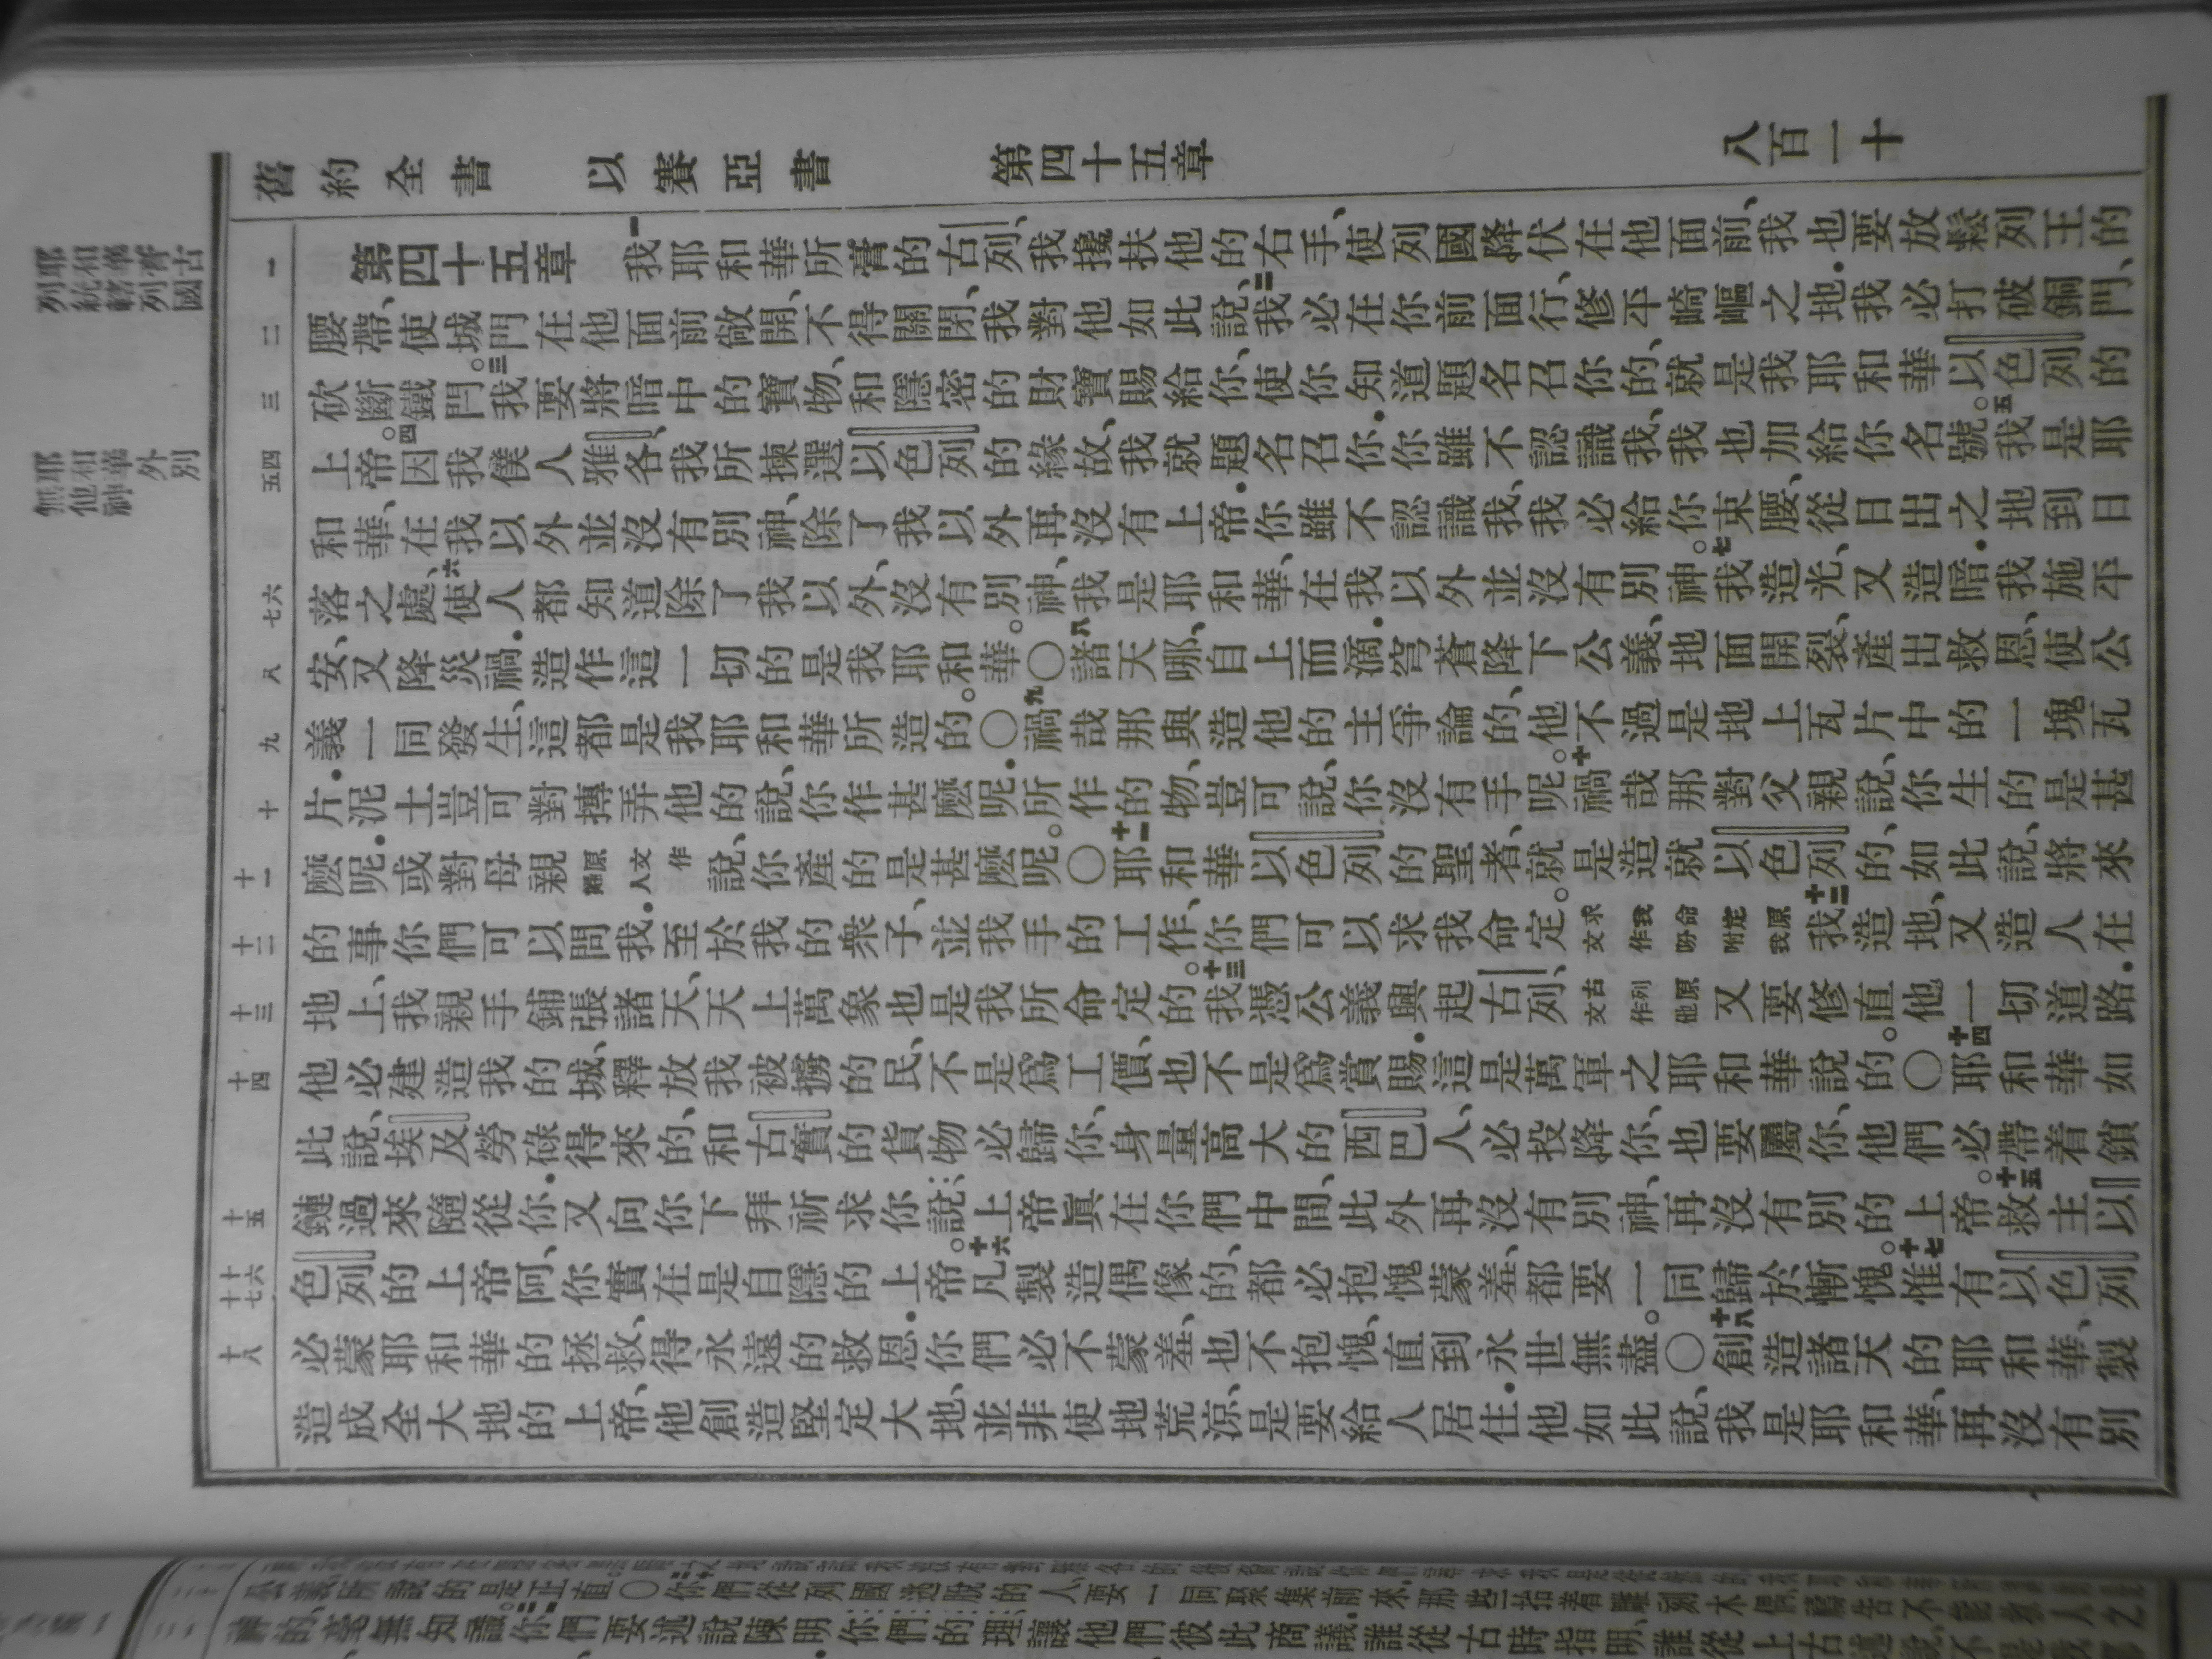 舊約全書 以賽亞書 第四十五章 八百一十
耶和華膏古列統轄列國
耶和華外別無他神
一 二 三 四 五 六 七 八 九 十 十一 十二 十三 十四 十五 十六 十七 十八
第四十五章 一我耶和華所膏的古列、我攙扶他的右手、使列國降伏在他面前、我也要放鬆列王的
腰帶、使城門在他面前敞開、不得關閉、我對他如此說、二我必在你前面行、修平崎嶇之地．我必打破銅門、
砍斷鐵門。三我要將暗中的寶物、和隱密的財寶賜給你、使你知道題名召你的、就是我耶和華以色列的
上帝。四因我僕人雅各、我所揀選以色列的緣故、我就題名召你．你雖不認識我、我也加給你名號。五我是耶
和華、在我以外並沒有別神、除了我以外再沒有上帝．你雖不認識我、我必給你束腰、從日出之地到日
落之處、六使人都知道除了我以外、沒有別神、我是耶和華、在我以外並沒有別神。七我造光、又造暗．我施平
安、又降災禍．造作這一切的是我耶和華。○八諸天哪、自上而滴．穹蒼降下公義、地面開裂、產出救恩、使公
義一同發生、這都是我耶和華所造的。○九禍哉那與造他的主爭論的、他不過是地上瓦片中的一塊瓦
片．泥土豈可對摶弄他的說、你作甚麼呢．所作的物、豈可說、你沒有手呢。十禍哉那對父親說、你生的是甚
麼呢．或對母親原文作婦人說、你產的是甚麼呢。○十一耶和華以色列的聖者、就是造就以色列的、如此說、將來
的事你們可以問我．至於我的衆子、並我手的工作、你們可以求我命定。求我命定原文作吩咐我十二我造地、又造人在
地上、我親手鋪張諸天、天上萬象也是我所命定的。十三我憑公義興起古列、古列原文作他又要修直他一切道路．
他必建造我的城、釋放我被擄的民、不是爲工價、也不是爲賞賜．這是萬軍之耶和華說的。○十四耶和華如
此說、埃及勞碌得來的、和古實的貨物必歸你、身量高大的西巴人、必投降你、也要屬你、他們必帶着鎖
鏈過來隨從你．又向你下拜祈求你說、上帝眞在你們中間、此外再沒有別神、再沒有別的上帝。十五救主以
色列的上帝阿、你實在是自隱的上帝。十六凡製造偶像的、都必抱愧蒙羞、都要一同歸於慚愧。十七惟有以色列
必蒙耶和華的拯救、得永遠的救恩．你們必不蒙羞、也不抱愧、直到永世無盡。○十八創造諸天的耶和華、製
造成全大地的上帝、他創造堅定大地、並非使地荒涼、是要給人居住．他如此說、我是耶和華、再沒有別